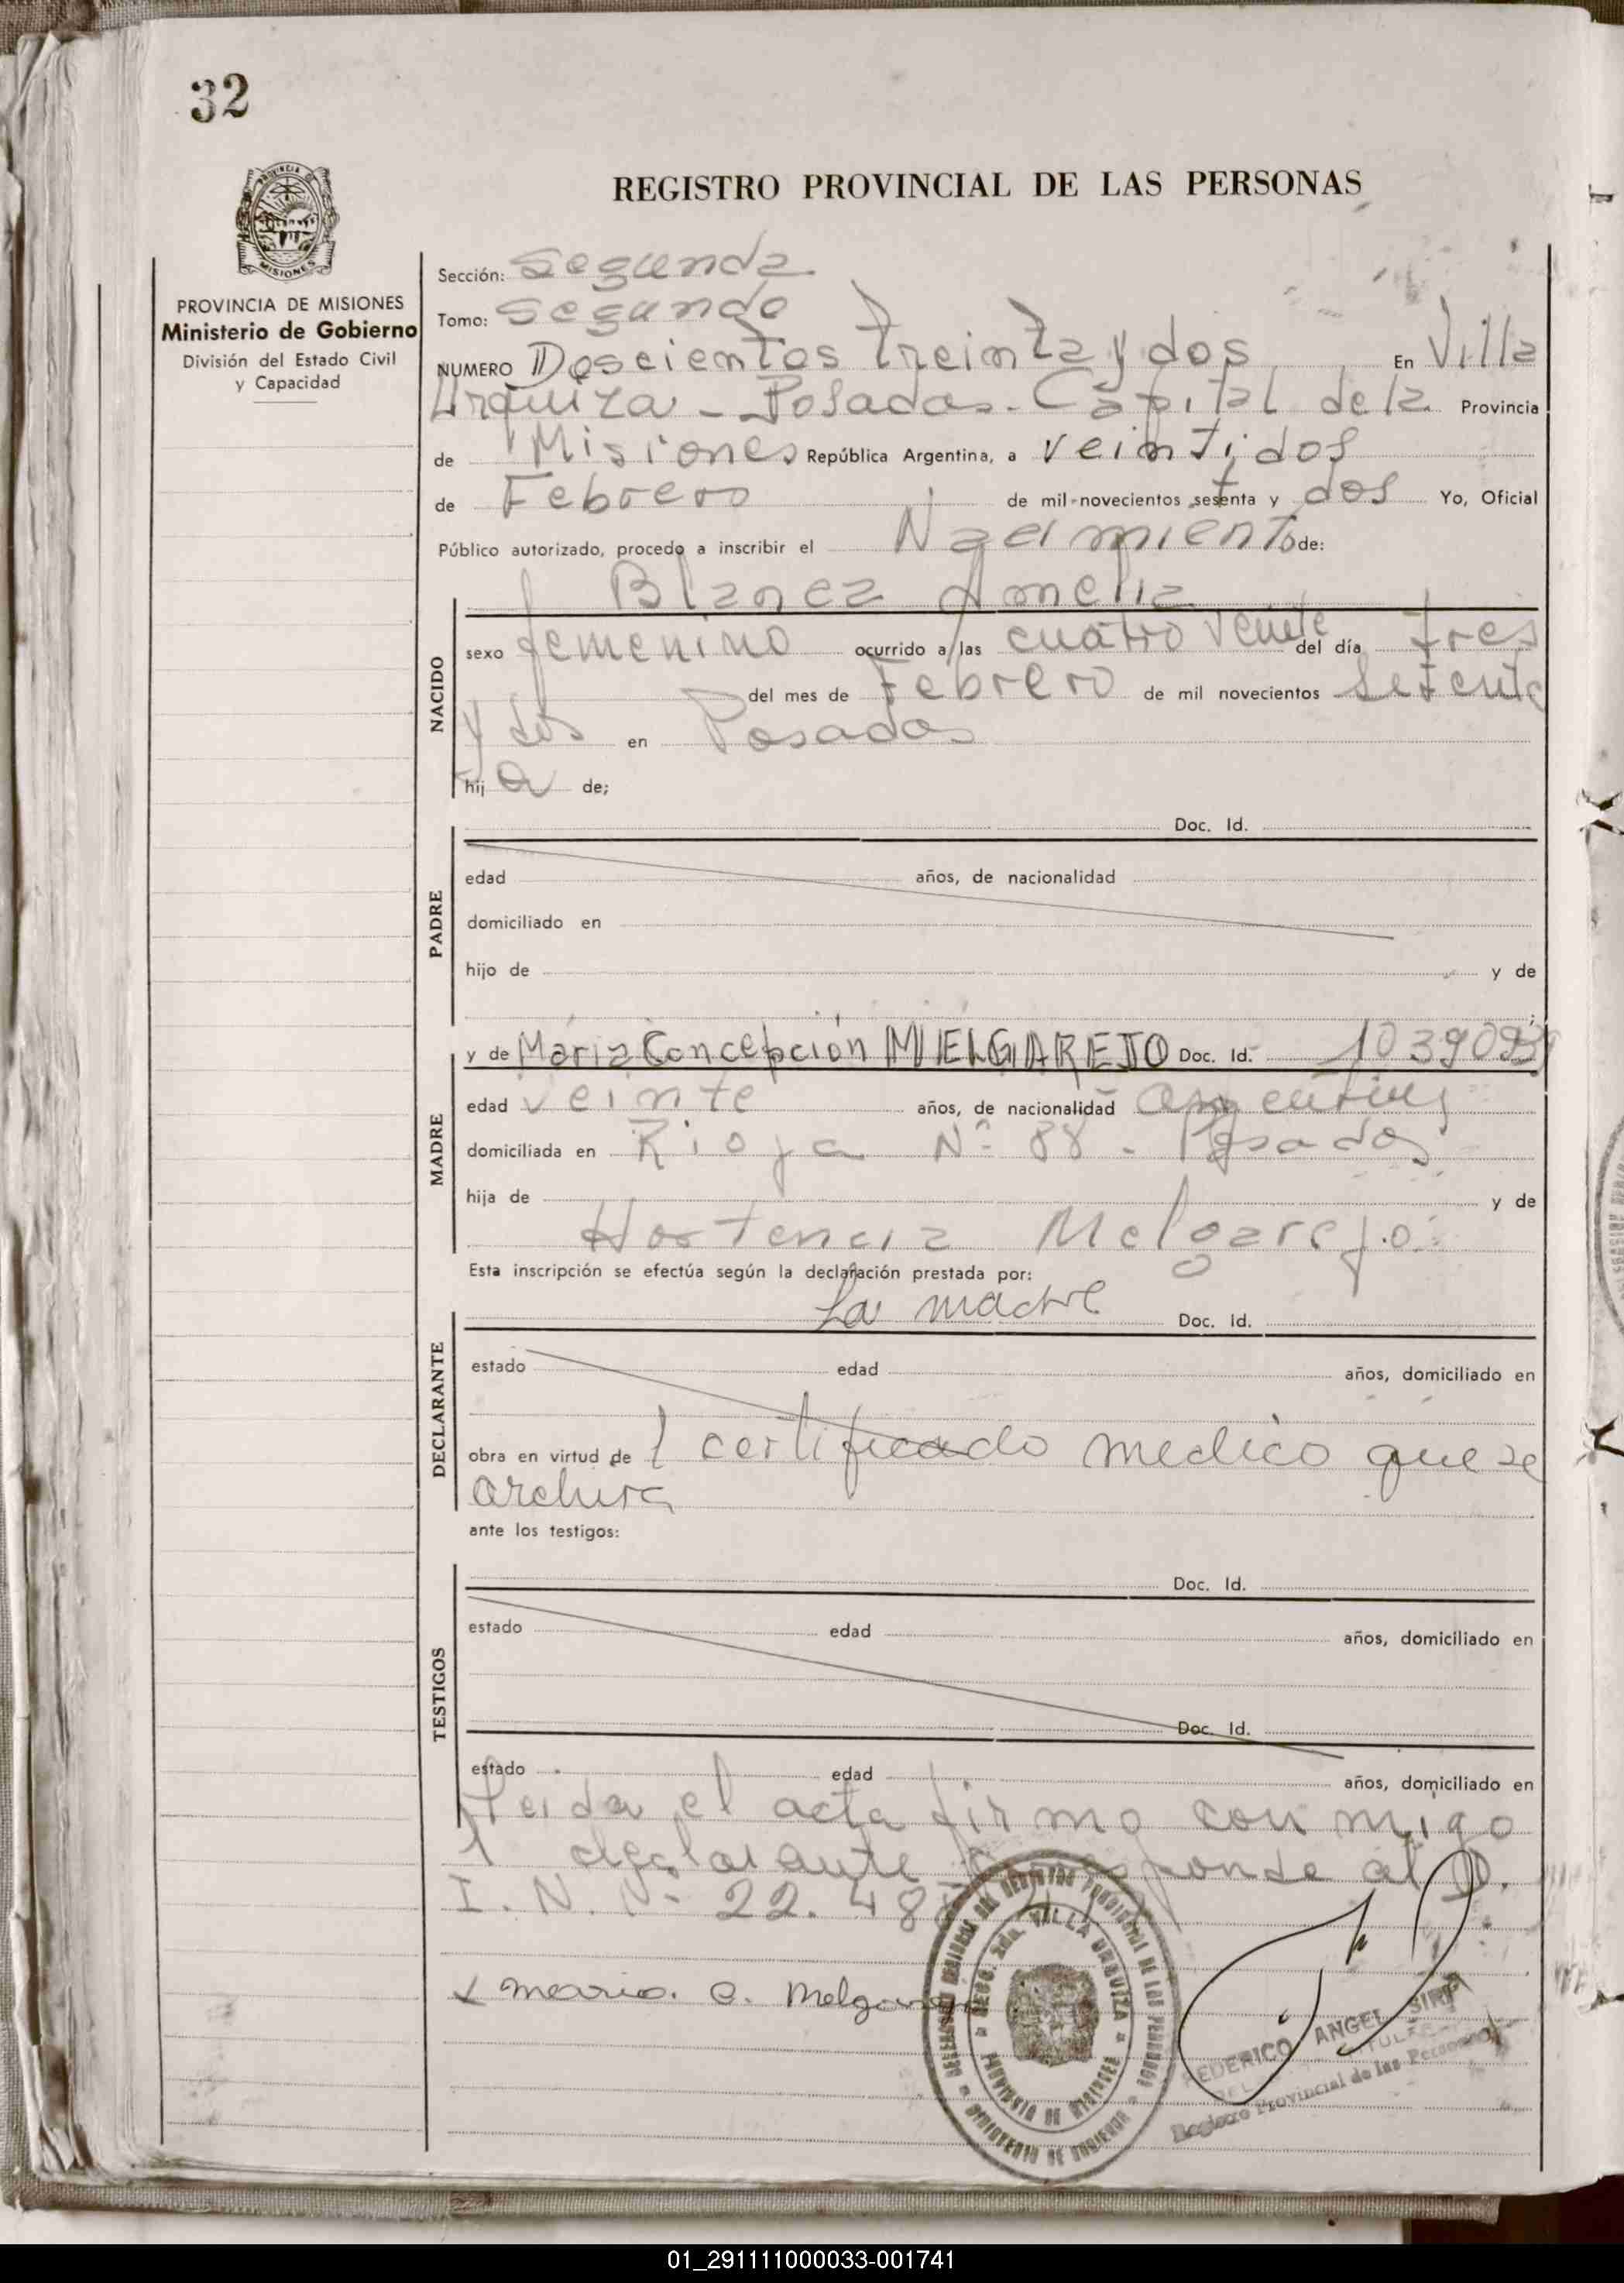 32
REGISTRO PROVINCIAL DE LAS PERSONAS
PROVINCIA DE MISIONES
MISIONES
PROVINCIA DE MISIONES
Ministerio de Gobierno
División del Estado Civil
y Capacidad
Sección: Segunda
Tomo: Segundo
NUMERO Doscientos treinta y dos En Villa
Urquiza - Posadas - Capital de la Provincia
de Misiones República Argentina, a veintidos
de Febrero de mil novecientos sesenta y dos Yo, Oficial
Público autorizado, procedo a inscribir el Nacimiento de:
Blanca Amelia
NACIDO
sexo femenino ocurrido a las cuatro veinte del día tres
del mes de Febrero de mil novecientos setenta
y dos en Posadas
hija de;
Doc. Id.
PADRE
edad años, de nacionalidad
domiciliado en
hijo de y de
;
y de Maria Concepción MELGAREJO Doc. Id.
MADRE
edad veinte años, de nacionalidad argentina
domiciliada en Rioja Nº 88 - Posadas
hija de y de
Hortencia Melgarejo
Esta inscripción se efectúa según la declaración prestada por:
La madre Doc. Id.
DECLARANTE
estado edad años, domiciliado en
obra en virtud de 1 certificado medico que se
archiva
ante los testigos:
Doc. Id.
TESTIGOS
estado edad años, domiciliado en
Doc. Id.
estado edad años, domiciliado en
Leida el acta firmo con migo
1 declarante Corresponde al D.
I. N. Nº 22.48
Maria. C. Melgarejo
SECC. 2da. VILLA URQUIZA
PROVINCIA DE MISIONES
MINISTERIO DE GOBIERNO
FEDERICO ANGEL
Registro Provincial de las Personas
01_291111000033-001741